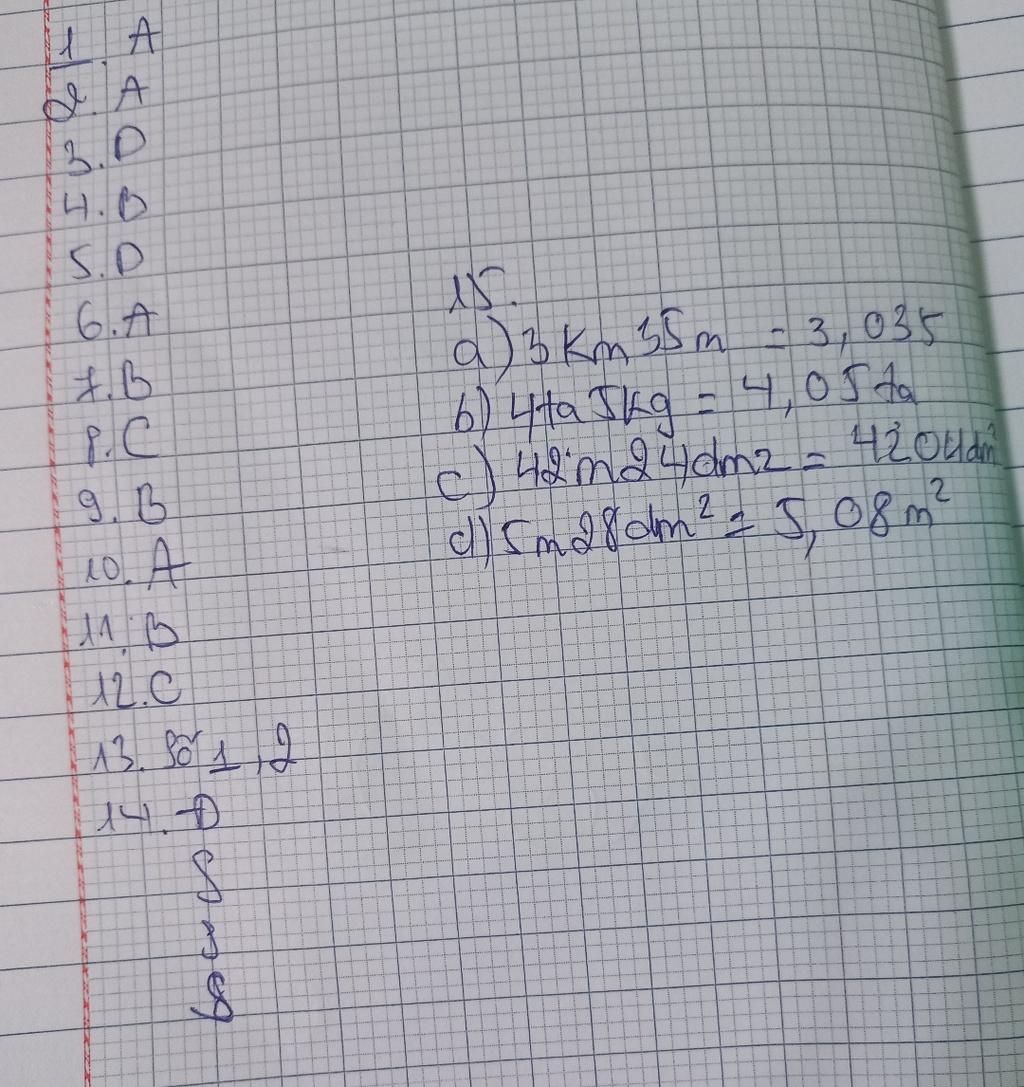 1. A
2. A
3. D
4. B
5. D
6. A
7. B
8. C
9. B
10. A
11. B
12. C
13. Số 1,2
14. Đ
S
S
15.
a) 3 km 35m = 3,035
b) 4 tạ 5kg = 4,05 tạ
c) 42m24dm2 = 4204dm²
d) 5m28dm² = 5,08m²